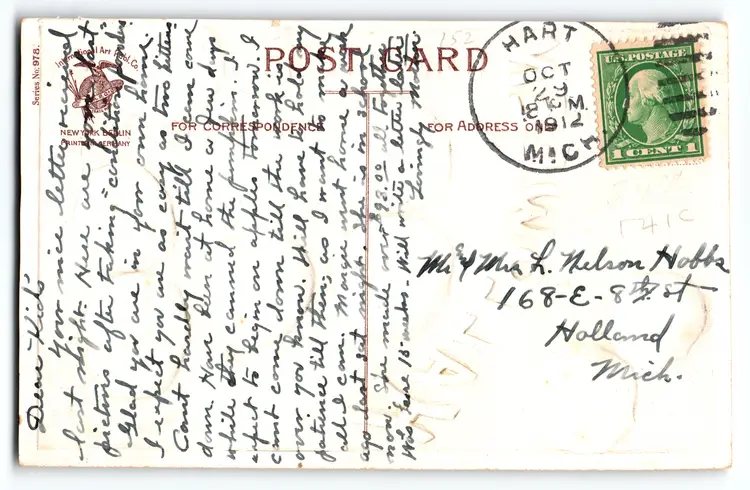 Series No. 978.
International Art Publ. Co.
NEW YORK BERLIN
PRINTED IN GERMANY
POST CARD
FOR CORRESPONDENCE
FOR ADDRESS ONLY
152
HART
OCT
29
1912
MICH.
U.S. POSTAGE
1 CENT 1
Mr & Mrs L. Nelson Hobbs
168-E-8th st
Holland
Mich.
Dear Kids
Your nice letter received
last night. Here are
pictures after taking
Glad you are in your own home.
I expect you are as cozy as two kittens
Cant hardly wait till I can come
down. Have been at home a few days
while they canned the pumpkins. I
expect to begin on apples tomorrow. I
cant come down till the cook is
over you know. Will have to hold my
patience till then, as I want to make
all I can. Margie went home a week
ago last sat night. She is in school
now. She made over $98.00 all together
Was here 13 weeks - Will write a letter later
Lovingly